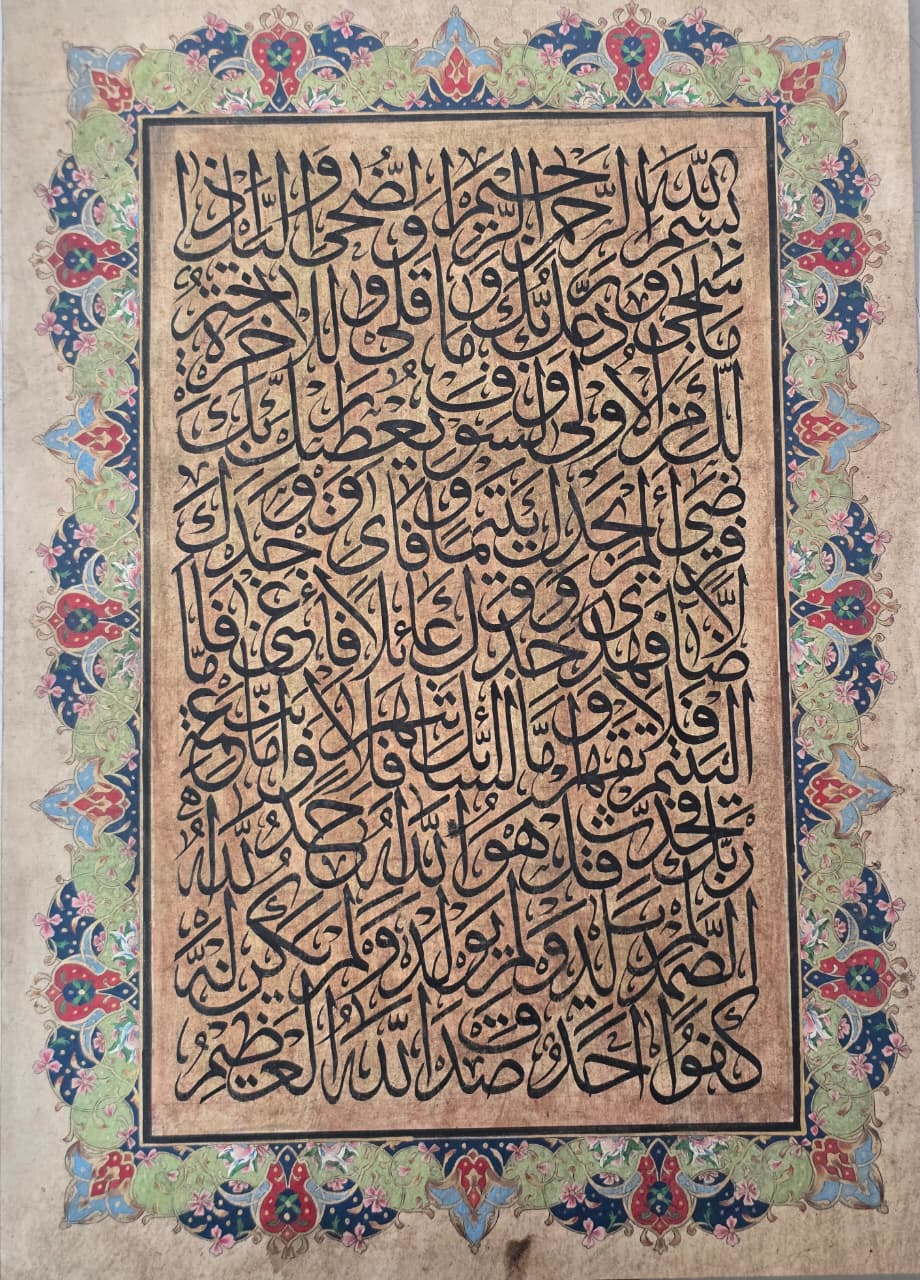 بسم الله الرحمن الرحيم والضحى والليل اذا
سجى ما ودعك ربك وما قلى وللاخرة خير
لك من الاولى ولسوف يعطيك ربك
فترضى ألم يجدك يتيما فاوى ووجدك
ضالا فهدى ووجدك عائلا فأغنى فاما
اليتيم فلا تقهر واما السائل فلا تنهر واما بنعمة
ربك فحدث قل هو الله احد الله
الصمد لم يلد ولم يولد ولم يكن له
كفوا احد صدق الله العظيم